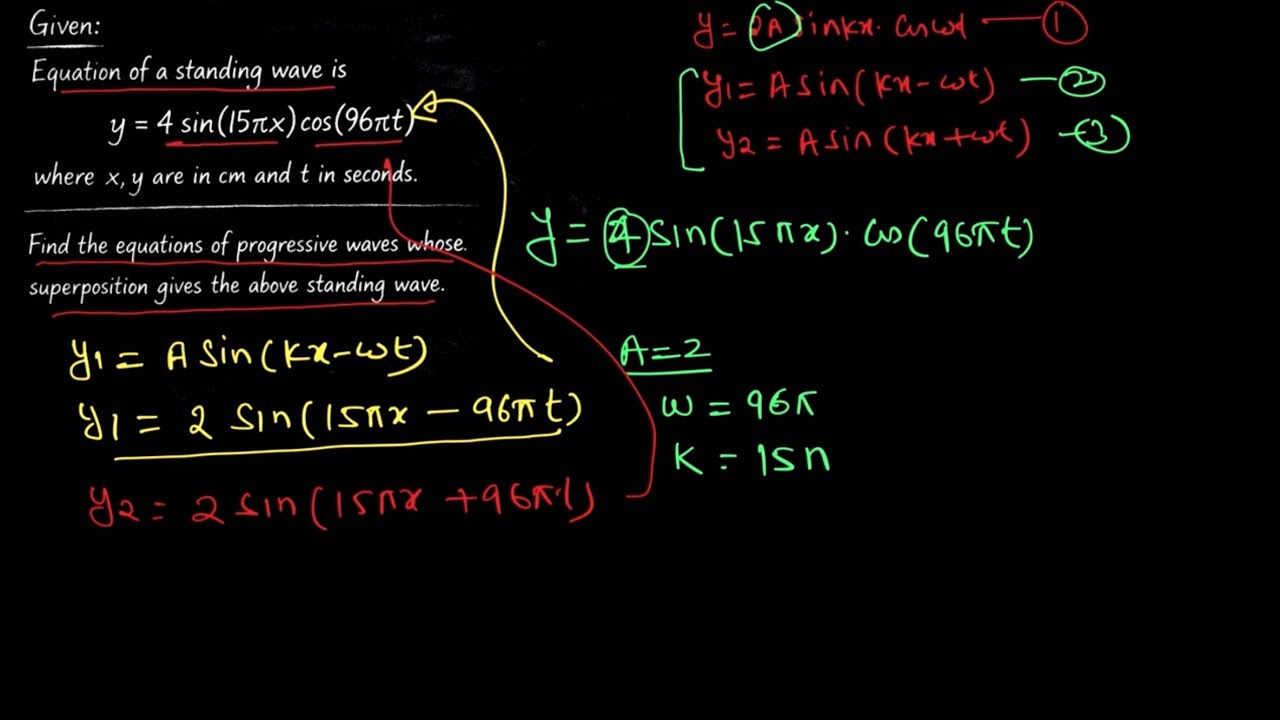 Given:
Equation of a standing wave is
y = 4 sin(15πx) cos(96πt)
where x, y are in cm and t in seconds.
Find the equations of progressive waves whose
superposition gives the above standing wave.
y1 = A sin(kx-ωt)
y1 = 2 sin(15πx - 96πt)
y2 = 2 sin(15πx + 96πt)
y = 2A sinkx. cosωt — 1
y1 = A sin(kx-ωt) — 2
y2 = A sin(kx+ωt) — 3
y = 4 sin(15πx). cos(96πt)
A = 2
ω = 96π
K = 15π